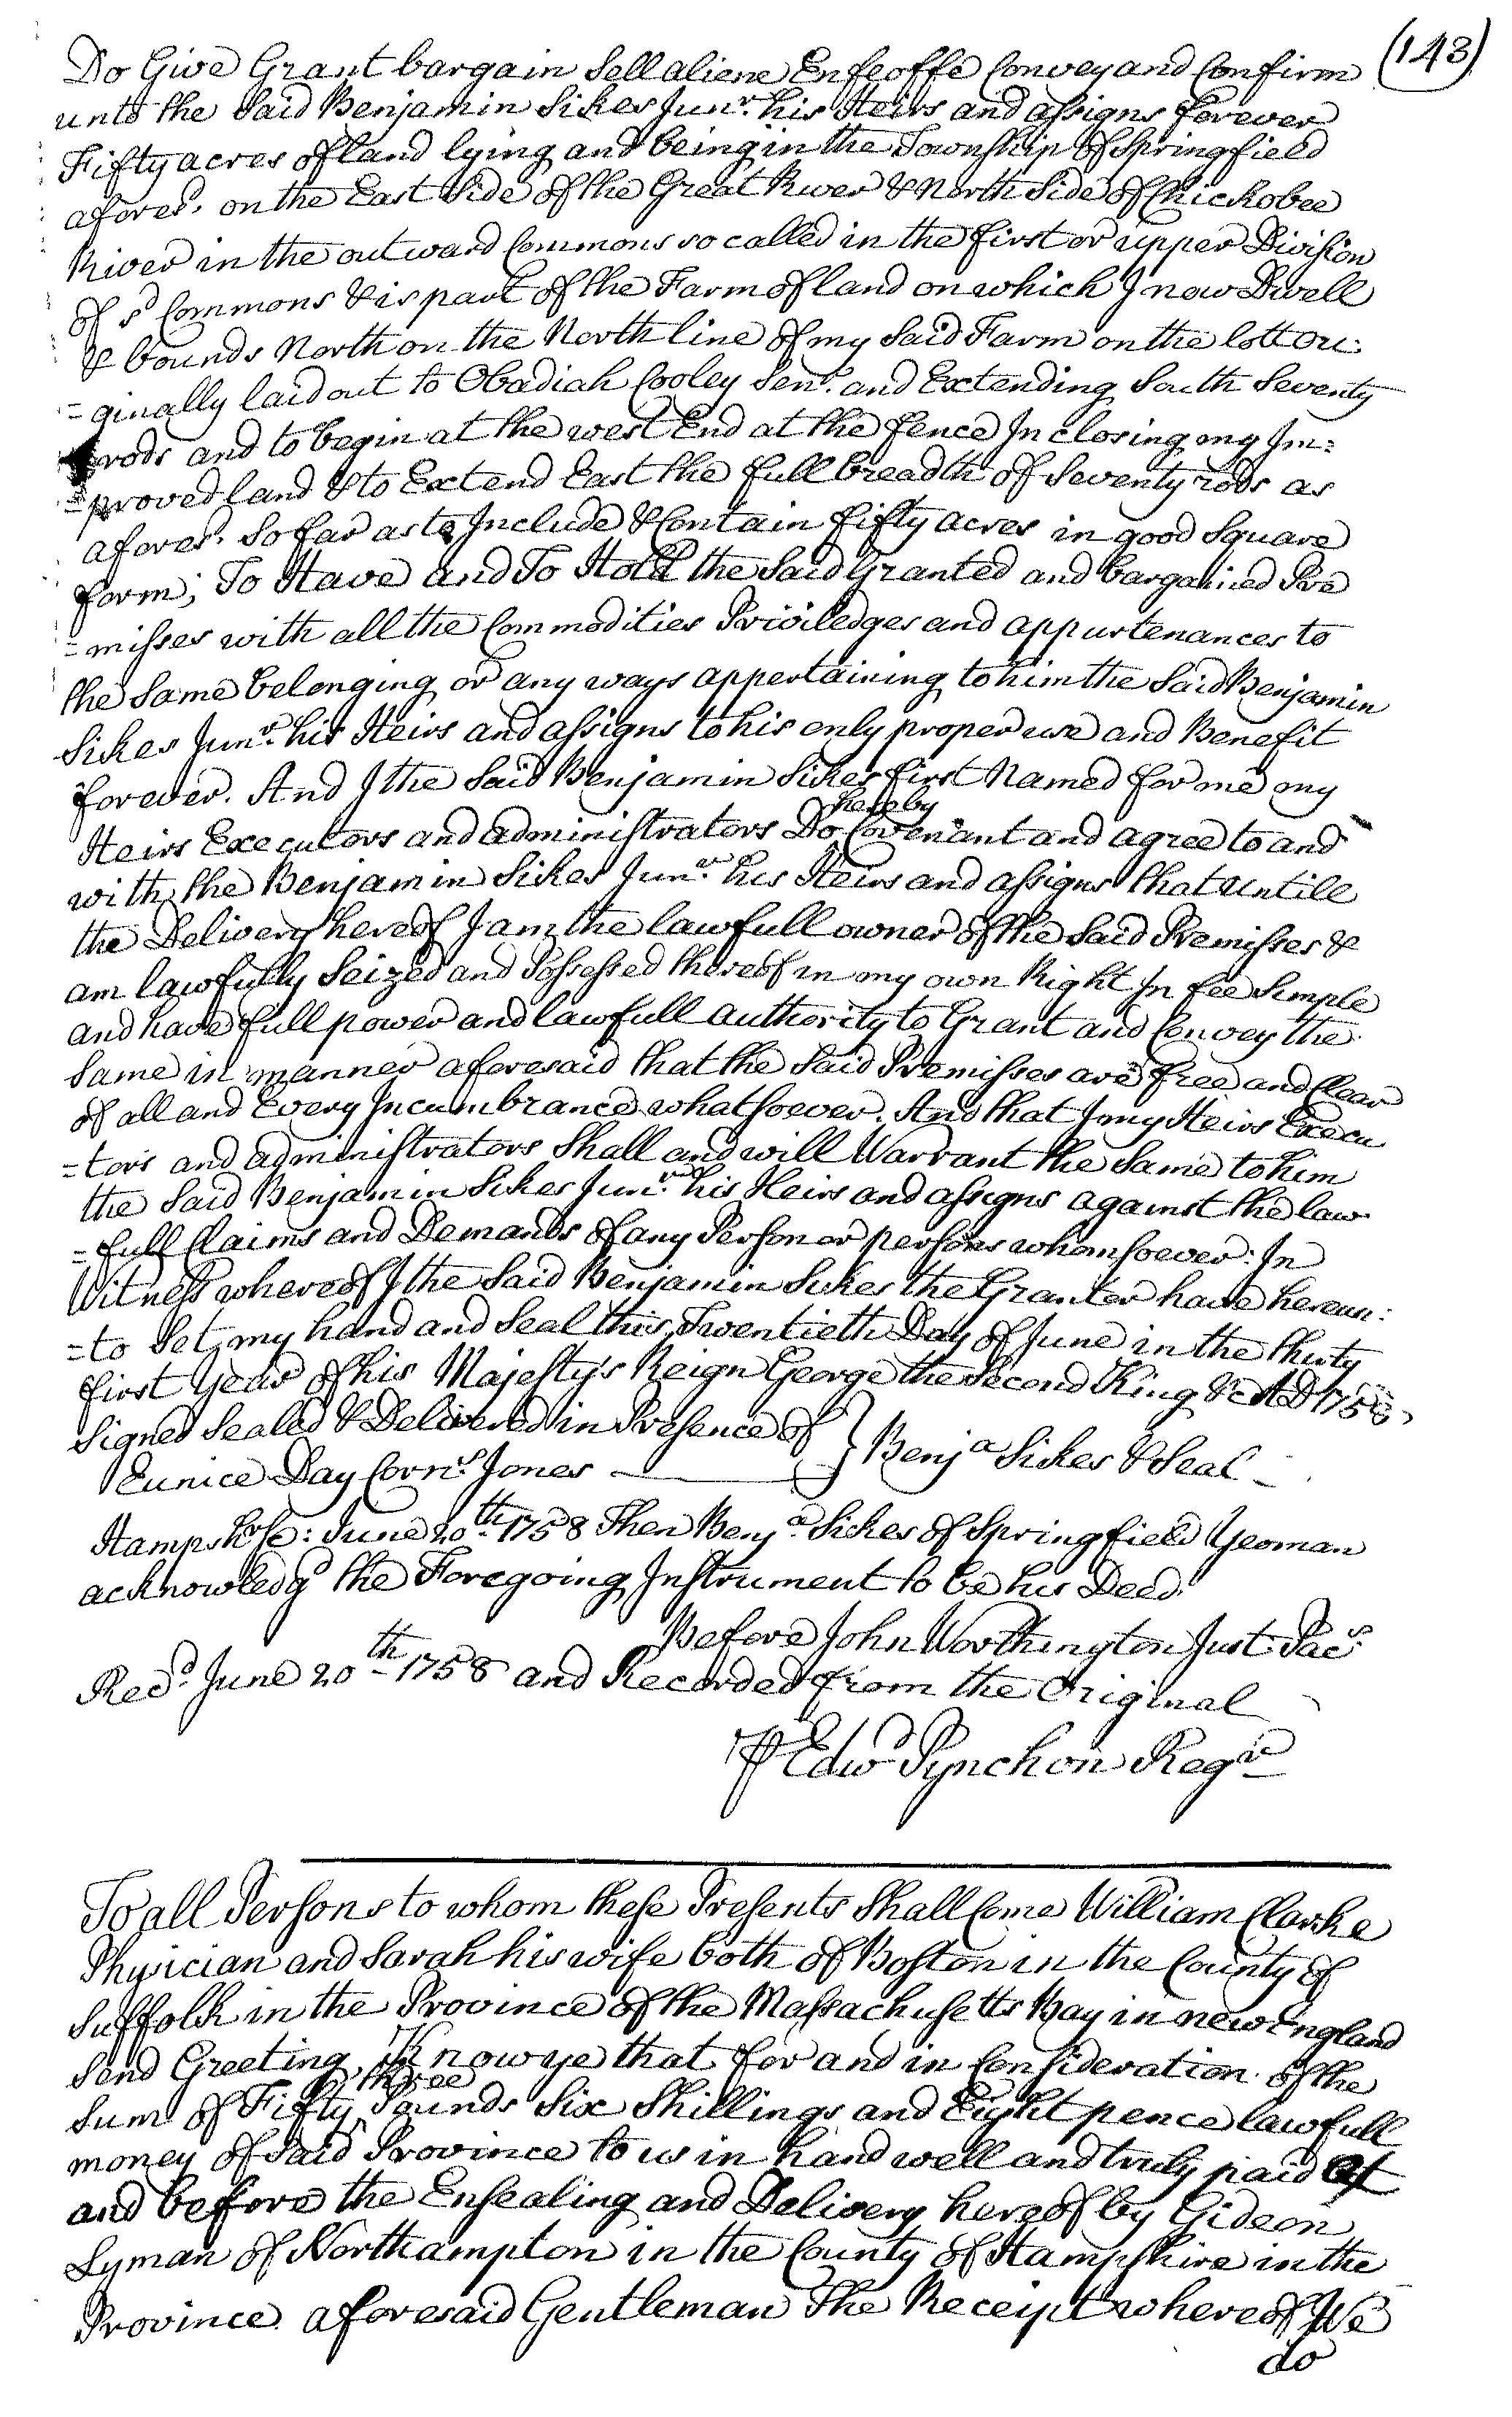 (143)
Do Give Grant bargain Sell aliene Enfeoffe Convey and Confirm
unto the Said Benjamin Sikes Junr. his Heirs and assigns forever
Fifty acres of land lying and being in the Township of Springfield
afores'd. on the East Side of the Great River & North Side of Chickobee
River in the outward Commons so called in the first or upper Division
of sd Commons & is part of the Farm of land on which I now Dwell
& bounds North on the North line of my Said Farm on the lott ori:
=ginally laid out to Obadiah Cooley Senr. and Extending South Seventy
rods and to begin at the west End at the fence Inclosing my Im:
=proved land & to Extend East the full breadth of Seventy rods as
afores'd. So far as to Include & Contain fifty acres in good Square
form; To Have and To Hold the Said Granted and bargained Pre
=misses with all the Commodities Priviledges and appurtenances to
the Same belonging or any ways appertaining to him the Said Benjamin
Sikes Junr. his Heirs and assigns to his only proper use and Benefit
forever. And I the Said Benjamin Sikes first Named for me my
Heirs Executors and administrators Do hereby Covenant and agree to and
with the Benjamin Sikes Junr. his Heirs and assigns that untill
the Delivery hereof I am the lawfull owner of the Said Premisses &
am lawfully Seized and Possessed thereof in my own Right In fee Simple
and have full power and lawfull authority to Grant and Convey the
Same in manner aforesaid that the Said Premisses are free and Clear
of all and Every Incumbrance whatsoever. And that I my Heirs Execu
=tors and administrators Shall and will Warrant the Same to him
the Said Benjamin Sikes Junr. his Heirs and assigns against the law
=full Claims and Demands of any Person or persons whomsoever: In
Witness whereof I the Said Benjamin Sikes the Granter have hereun:
=to Set my hand and Seal this Twentieth Day of June in the thirty
first Year of his Majesty's Reign George the Second King &c AD 1758
Signed Sealed & Delivered in Presence of } Benja Sikes & Seal
Eunice Day Cornl. Jones
Hampshr ss: June 20th 1758 Then Benja Sikes of Springfield Yeoman
acknowledgd the Foregoing Instrument to be his Deed
Before John Worthington Just. Pacs.
Recd. June 20th 1758 and Recorded from the Original
P Edwd Pynchon Regr
To all Persons to whom these Presents Shall Come William Clarke
Physician and Sarah his wife both of Boston in the County of
Suffolk in the Province of the Massachusetts Bay in new England
Send Greeting, Know ye that for and in Consideration of the
Sum of Fifty three Pounds Six Shillings and Eight pence lawfull
money of Said Province to us in hand well and truly paid at
and before the Ensealing and Delivery hereof by Gideon
Lyman of Northampton in the County of Hampshire in the
Province aforesaid Gentleman The Receipt whereof We
do